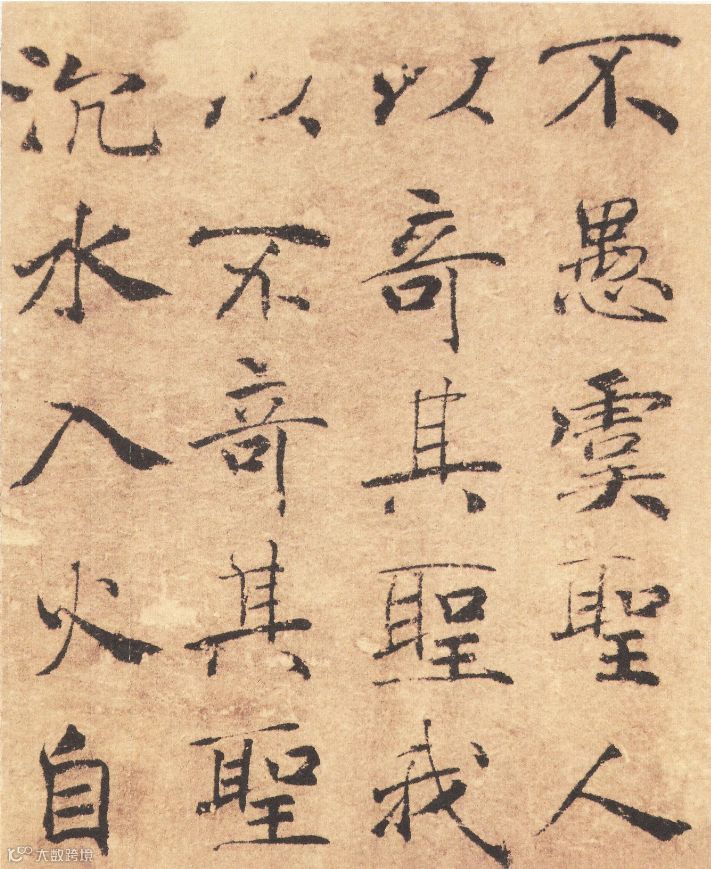 不愚虞聖人
以竒其聖我
以不竒其聖
沉水入火自
大数跨境